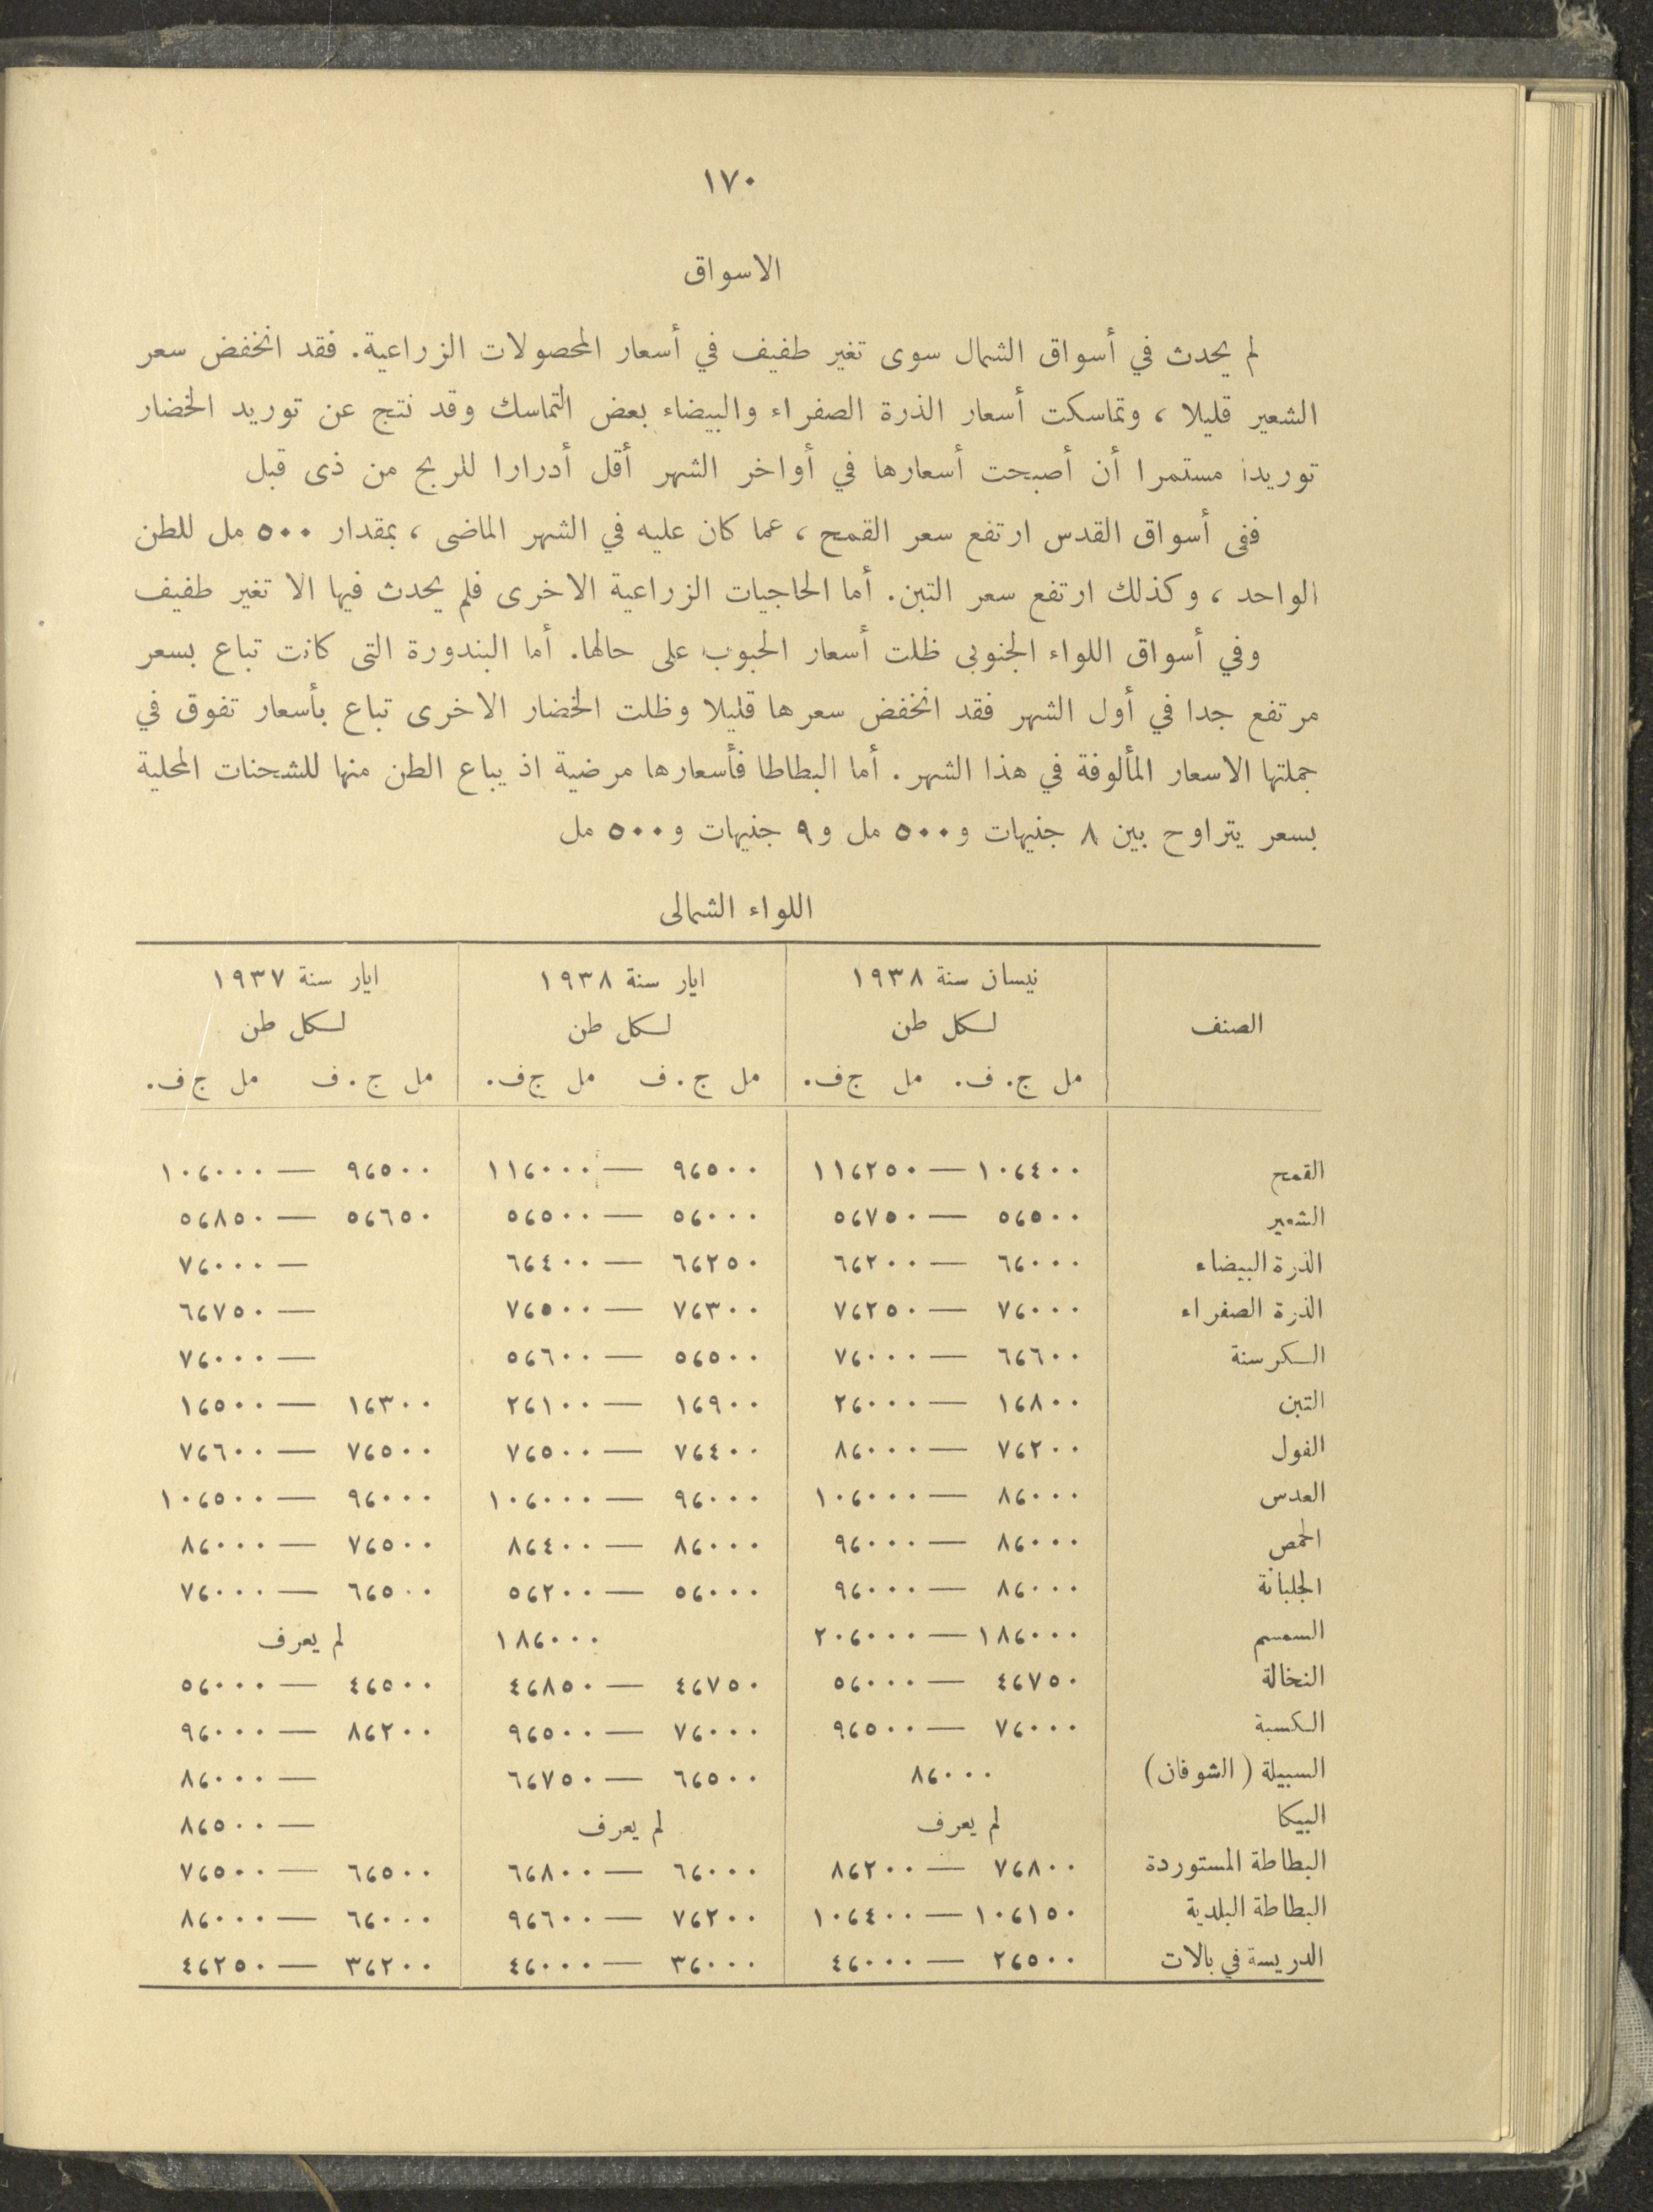 ١٧٠
الاسواق
لم يحدث في أسواق الشمال سوى تغير طفيف في أسعار المحصولات الزراعية. فقد انخفض سعر
الشعير قليلا ، وتماسكت أسعار الذرة الصفراء والبيضاء بعض التماسك وقد نتج عن توريد الخضار
توريدا مستمرا أن أصبحت أسعارها في أواخر الشهر أقل أدرارا للربح من ذى قبل
ففى أسواق القدس ارتفع سعر القمح ، عما كان عليه في الشهر الماضى ، بمقدار ٥٠٠ مل للطن
الواحد ، وكذلك ارتفع سعر التبن. أما الحاجيات الزراعية الاخرى فلم يحدث فيها الا تغير طفيف
وفي أسواق اللواء الجنوبى ظلت أسعار الحبوب على حالها. أما البندورة التى كانت تباع بسعر
مرتفع جدا في أول الشهر فقد انخفض سعرها قليلا وظلت الخضار الاخرى تباع بأسعار تفوق في
جملتها الاسعار المألوفة في هذا الشهر. أما البطاطا فأسعارها مرضية اذ يباع الطن منها للشحنات المحلية
بسعر يتراوح بين ٨ جنيهات و٥٠٠ مل و٩ جنيهات و٥٠٠ مل
اللواء الشمالى
الصنف نيسان سنة ١٩٣٨ ايار سنة ١٩٣٨ ايار سنة ١٩٣٧
لكل طن لكل طن لكل طن
مل ج. ف. مل ج ف. مل ج. ف مل ج ف. مل ج. ف مل ج ف.
القمح ١٠،٤٠٠ — ١١،٢٥٠ ٩،٥٠٠ — ١١،٠٠٠ ٩،٥٠٠ — ١٠،٠٠٠
الشعير ٥،٥٠٠ — ٥،٧٥٠ ٥،٠٠٠ — ٥،٥٠٠ ٥،٦٥٠ — ٥،٨٥٠
الذرة البيضاء ٦،٠٠٠ — ٦،٢٠٠ ٦،٢٥٠ — ٦،٤٠٠ — ٧،٠٠٠
الذرة الصفراء ٧،٠٠٠ — ٧،٢٥٠ ٧،٣٠٠ — ٧،٥٠٠ — ٦،٧٥٠
الكرسنة ٦،٦٠٠ — ٧،٠٠٠ ٥،٥٠٠ — ٥،٦٠٠ — ٧،٠٠٠
التبن ١،٨٠٠ — ٢،٠٠٠ ١،٩٠٠ — ٢،١٠٠ ١،٣٠٠ — ١،٥٠٠
الفول ٧،٢٠٠ — ٨،٠٠٠ ٧،٤٠٠ — ٧،٥٠٠ ٧،٥٠٠ — ٧،٦٠٠
العدس ٨،٠٠٠ — ١٠،٠٠٠ ٩،٠٠٠ — ١٠،٠٠٠ ٩،٠٠٠ — ١٠،٥٠٠
الحمص ٨،٠٠٠ — ٩،٠٠٠ ٨،٠٠٠ — ٨،٤٠٠ ٧،٥٠٠ — ٨،٠٠٠
الجلبانة ٨،٠٠٠ — ٩،٠٠٠ ٥،٠٠٠ — ٥،٢٠٠ ٦،٥٠٠ — ٧،٠٠٠
السمسم ١٨،٠٠٠ — ٢٠،٠٠٠ ١٨،٠٠٠ لم يعرف
النخالة ٤،٧٥٠ — ٥،٠٠٠ ٤،٧٥٠ — ٤،٨٥٠ ٤،٥٠٠ — ٥،٠٠٠
الكسبة ٧،٠٠٠ — ٩،٥٠٠ ٧،٠٠٠ — ٩،٥٠٠ ٨،٢٠٠ — ٩،٠٠٠
السبيلة (الشوفان) ٨،٠٠٠ ٦،٥٠٠ — ٦،٧٥٠ — ٨،٠٠٠
البيكا لم يعرف لم يعرف — ٨،٥٠٠
البطاطة المستوردة ٧،٨٠٠ — ٨،٢٠٠ ٦،٠٠٠ — ٦،٨٠٠ ٦،٥٠٠ — ٧،٥٠٠
البطاطة البلدية ١٠،١٥٠ — ١٠،٤٠٠ ٧،٢٠٠ — ٩،٦٠٠ ٦،٠٠٠ — ٨،٠٠٠
الدريسة في بالات ٢،٥٠٠ — ٤،٠٠٠ ٣،٠٠٠ — ٤،٠٠٠ ٣،٢٠٠ — ٤،٢٥٠